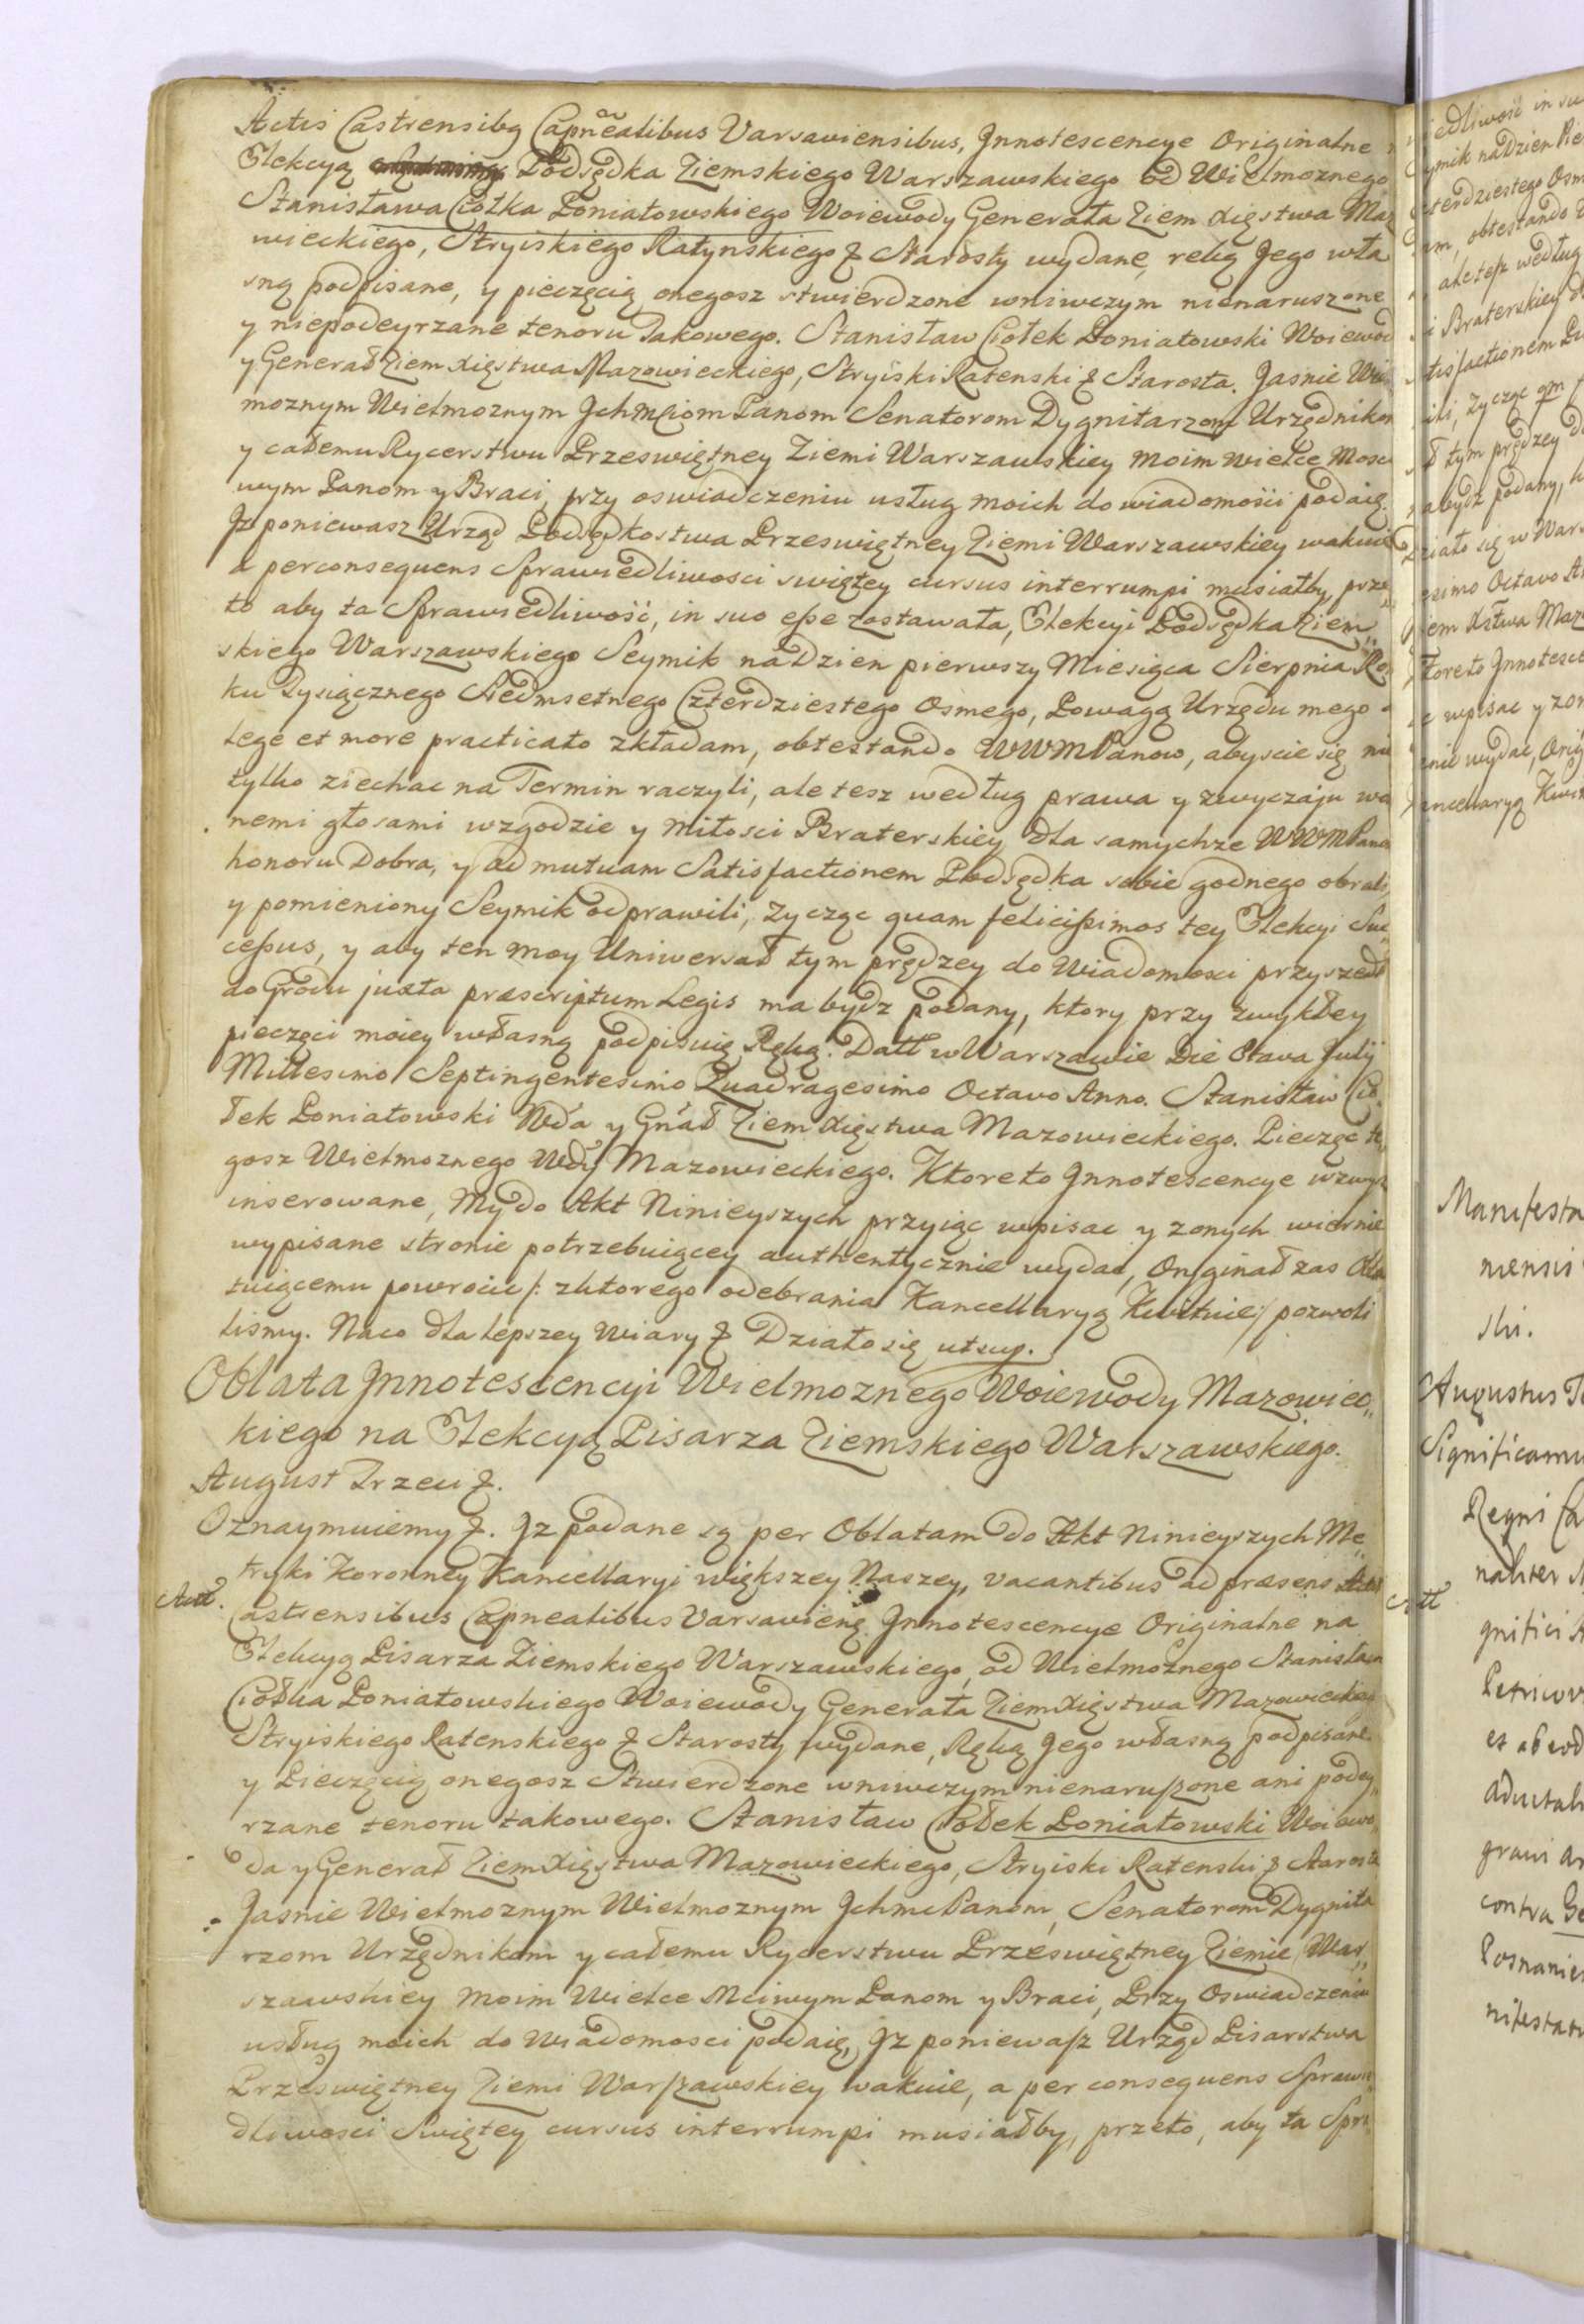 Actis Castrensibq Capnealibus Varsaviensibus, Jnnotescencye Originalne
Elekcyą Podsędka Ziemskiego Warszawskiego od Wielmoznego
Stanisława Ciołka Poniatowskiego Woiewody Generała Ziem Xięstwa Maz
wieckiego, Stryiskiego Ratynskiego & Starosty wydane, ręką Jego wła
sną podpisane, y pieczęcią onegosz stwierdzone wniwczym nienaruszone
y niepodeyrzane tenoru Takowego. Stanisław Ciołek Poniatowski Woiewod
y Generał Ziem Xięstwa Mazowieckiego, Stryiski Ratenski & Starosta. Jasnie Wiel
moznym Wielmoznym Jchmciom Panom Senatorom Dygnitarzom Urzędnikom
y całemu Rycerstwu Przeswiętney Ziemi Warszawskiey moim wielce Mosci
wym Panom y Braci, przy oswiadczeniu usług moich do wiadomości podaię.
Jz poniewasz Urząd Podsędkostwa Przeswiętney Ziemi Warszawskiey wakuie
a perconsequens Sprawiedliwosci swiętey cursus interrumpi musiałby, prze
to aby ta Sprawiedliwość, in suo eße zostawała, Elekcyi Podsędka Ziem„
skiego Warszawskiego Seymik na Dzien pierwszy Miesiąca Sierpnia Ro„
ku Tysiącznego Siedmsetnego Czterdziestego Osmego, Powagą Urzędu mego
lege et more practicato zkładam, obtestando WWMPanow, abyscie się nie
tylko ziechac na Termin raczyli, ale tesz według prawa y zwyczaju wo
nemi głosami wzgodzie y miłosci Braterskiey dla samychze WWMPanow
honoru Dobra, y ad mutuam Satisfactionem Podsędka sobie godnego obrali,
y pomieniony Seymik odprawili, Zycząc quam felicißimos tey Elekcyi Suc„
ceßus, y aby ten moy Uniwersał tym prędzey do Wiadomosci przyszedł
do Grodu juxta præscriptum Legis ma bydz podany, ktory przy zwykłey
pieczęci moiey własną podpisuię Ręką. Datt w Warszawie Die Otava Julÿ
Millesimo Septingentesimo Quadragesimo Octavo Anno. Stanisław Cio
łek Poniatowski Wda y Gnał Ziem Xięstwa Mazowieckiego. Pieczęc te
gosz Wielmoznego Wdy Mazowieckiego. Ktoreto Jnnotescencye wzwysz
inserowane, My do Akt Ninieyszych przyiąc wpisac y zonych wiernie
wypisane stronie potrzebuiącey authentycznie wydac, Orÿginał zas Obla
tuiącemu powrocic /: zktorego odebrania Kancellaryą Kwituie :/ pozwoli
lismy. Naco dla lepszey wiary & Działo się utsup.
Oblata Jnnotescencyi Wielmoznego Woiewody Mazowiec„
kiego na Elekcyą Pisarza Ziemskiego Warszawskiego.
August Trzeci &.
Oznaymuiemy &. Jz podane są per Oblatam do Akt Ninieyszych Me„
tryki Koronney Kancellaryi większey Naszey, vacantibus ad præsens Actis
Castrensibus Capnealibus Varsavienq Jnnotescencye Originalne na
Elekcyą Pisarza Ziemskiego Warszawskiego, od Wielmoznego Stanisława
Ciołka Poniatowskiego Woiewody Generała Ziem Xięstwa Mazowieckieo
Stryiskiego Ratenskiego & Starosty wydane, Ręką Jego własną podpisane
y Pieczęcią onegosz Stwierdzone wniwczym nienarußone ani podey„
rzane tenoru takowego. Stanisław Ciołek Poniatowski Woiewo„
da y Generał Ziem Xięstwa Mazowieckiego, Stryiski Ratenski & Starosta
Jasnie Wielmoznym Wielmoznym JchmcPanom, Senatorom Dygnita
rzom Urzędnikom y całemu Rycerstwu Przeswiętney Ziemie War„
szawskiey moim Wielce Mciwym Panom y Braci, Przy Oswiadczeniu
usług moich do Wiadomosci podaię, Jz poniewaſz Urząd Pisarstwa
Przeswiętney Ziemi Warſzawskiey wakuie, a per consequens Sprawie
dliwosci Swiętey cursus interrumpi musiałby, przeto, aby ta Spra
Manifesta
niensis
ski.
Augustus
Significamu
Regni Ca
naliter
gnifici
Petricov
et ab eod
Aductali
gravi ar
contra Ge
Posnanien
nifestatu